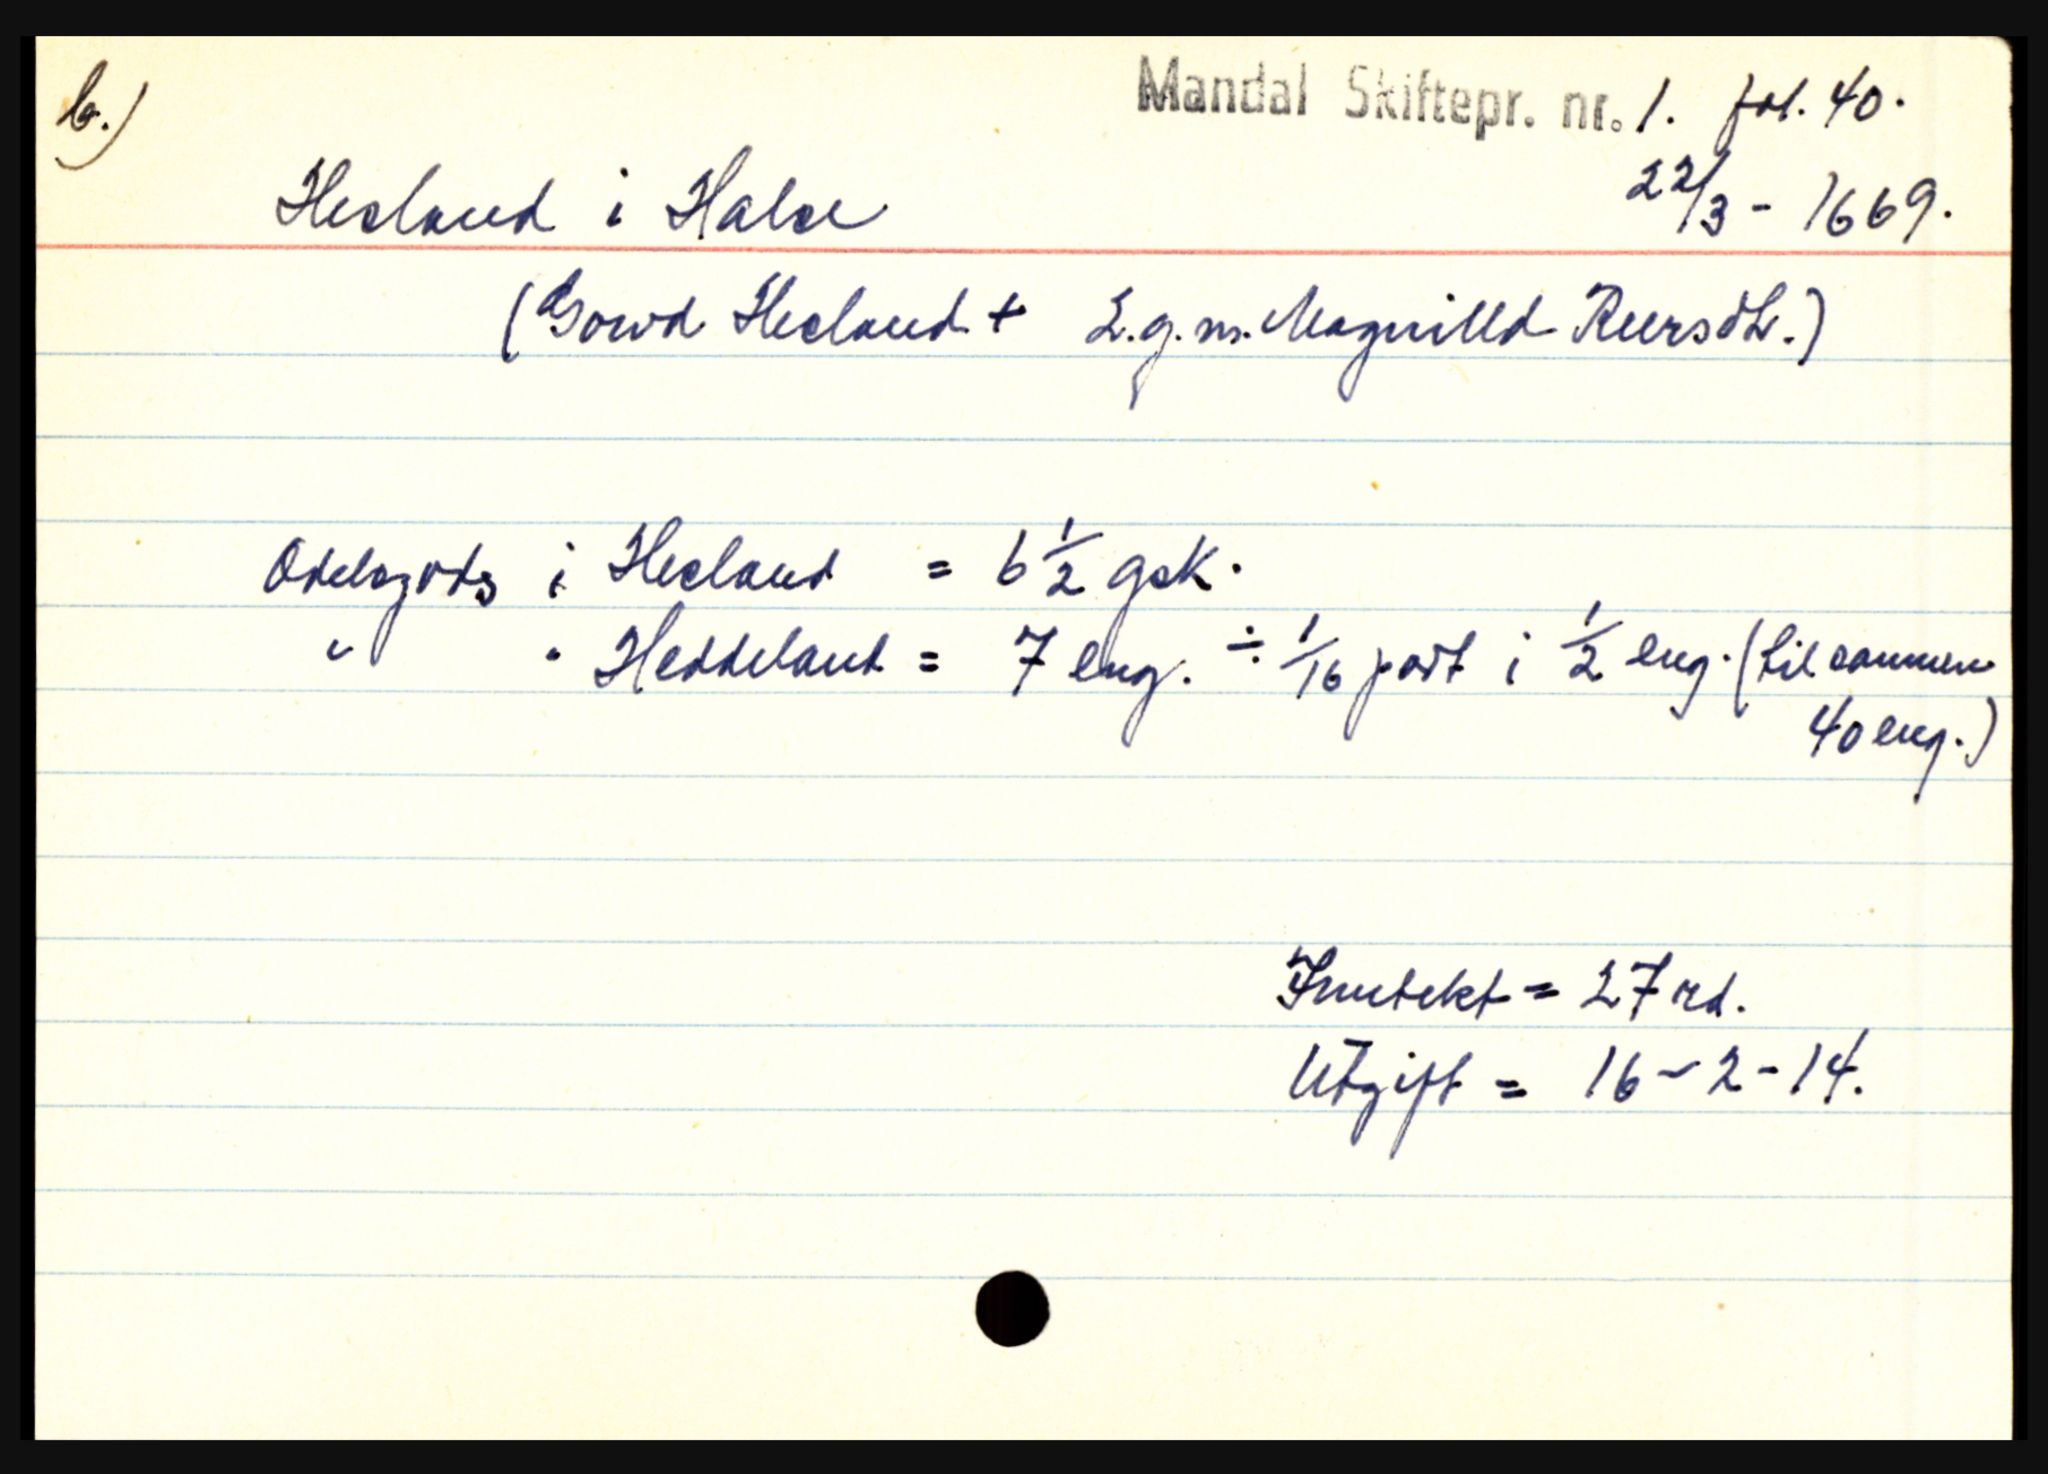 b.)
Mandal Skiftepr. nr. 1. fol. 40.
22/3 - 1669.
Hesland i Halse
(Gowd Hesland + E.g.m. Magnilld Reersdtr.)
Odelsgods i Hesland = 6 1/2 gsk.
" " Heddeland = 7 eng. ÷ 1/16 part i 1/2 eng. (tilsammen
40 eng.)
Inntekt = 27 rd.
Utgift = 16 - 2 - 14.